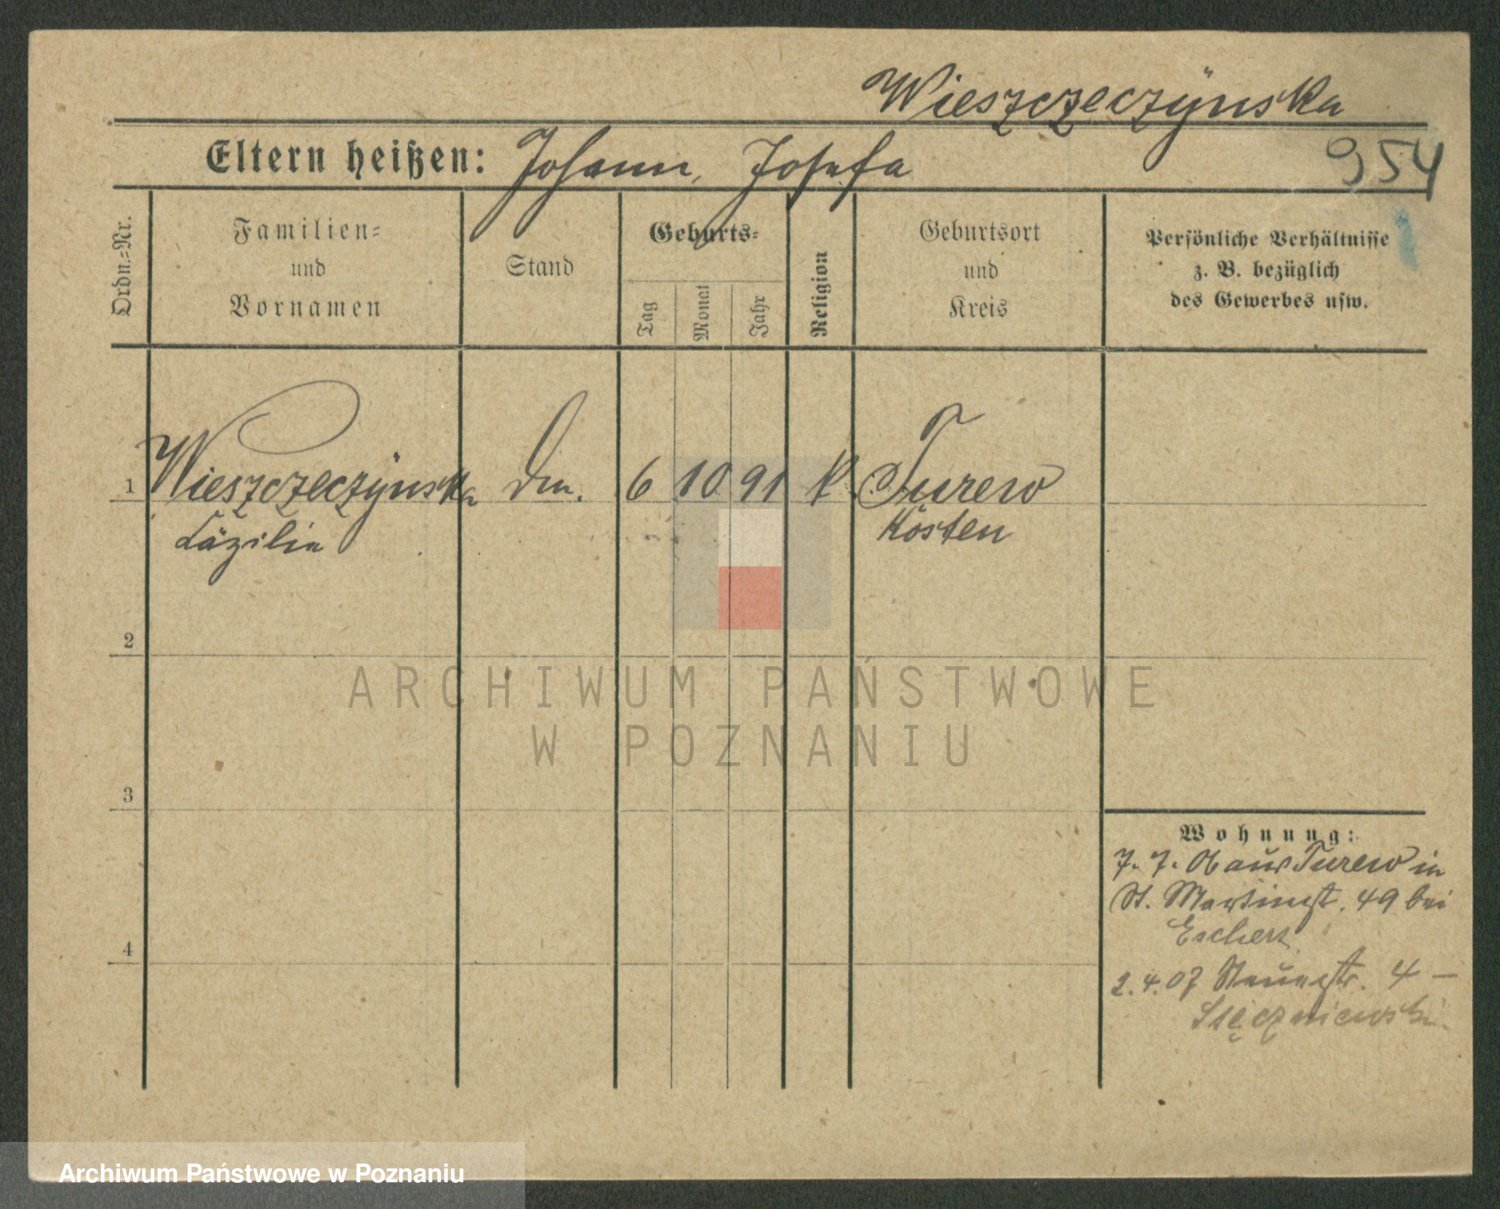 Wieszczeczÿnska
Eltern heißen: Johann, Josefa
954
Ordn.-Nr.
Familien-
und
Vornamen
Stand
Geburts-
Tag
Monat
Jahr
Religion
Geburtsort
und
Kreis
Persönliche Verhältnisse
z. B. bezüglich
des Gewerbes usw.
1 Wieszczeczÿnska Dm. 6 10 91 k Turew
Cäzilie Kosten
2
3
4
Wohnung:
7. 7. 06 aus Turew in
St. Martinstr. 49 bei
Eschert
2. 4. 07 4 –
ARCHIWUM PAŃSTWOWE
W POZNANIU
Archiwum Państwowe w Poznaniu